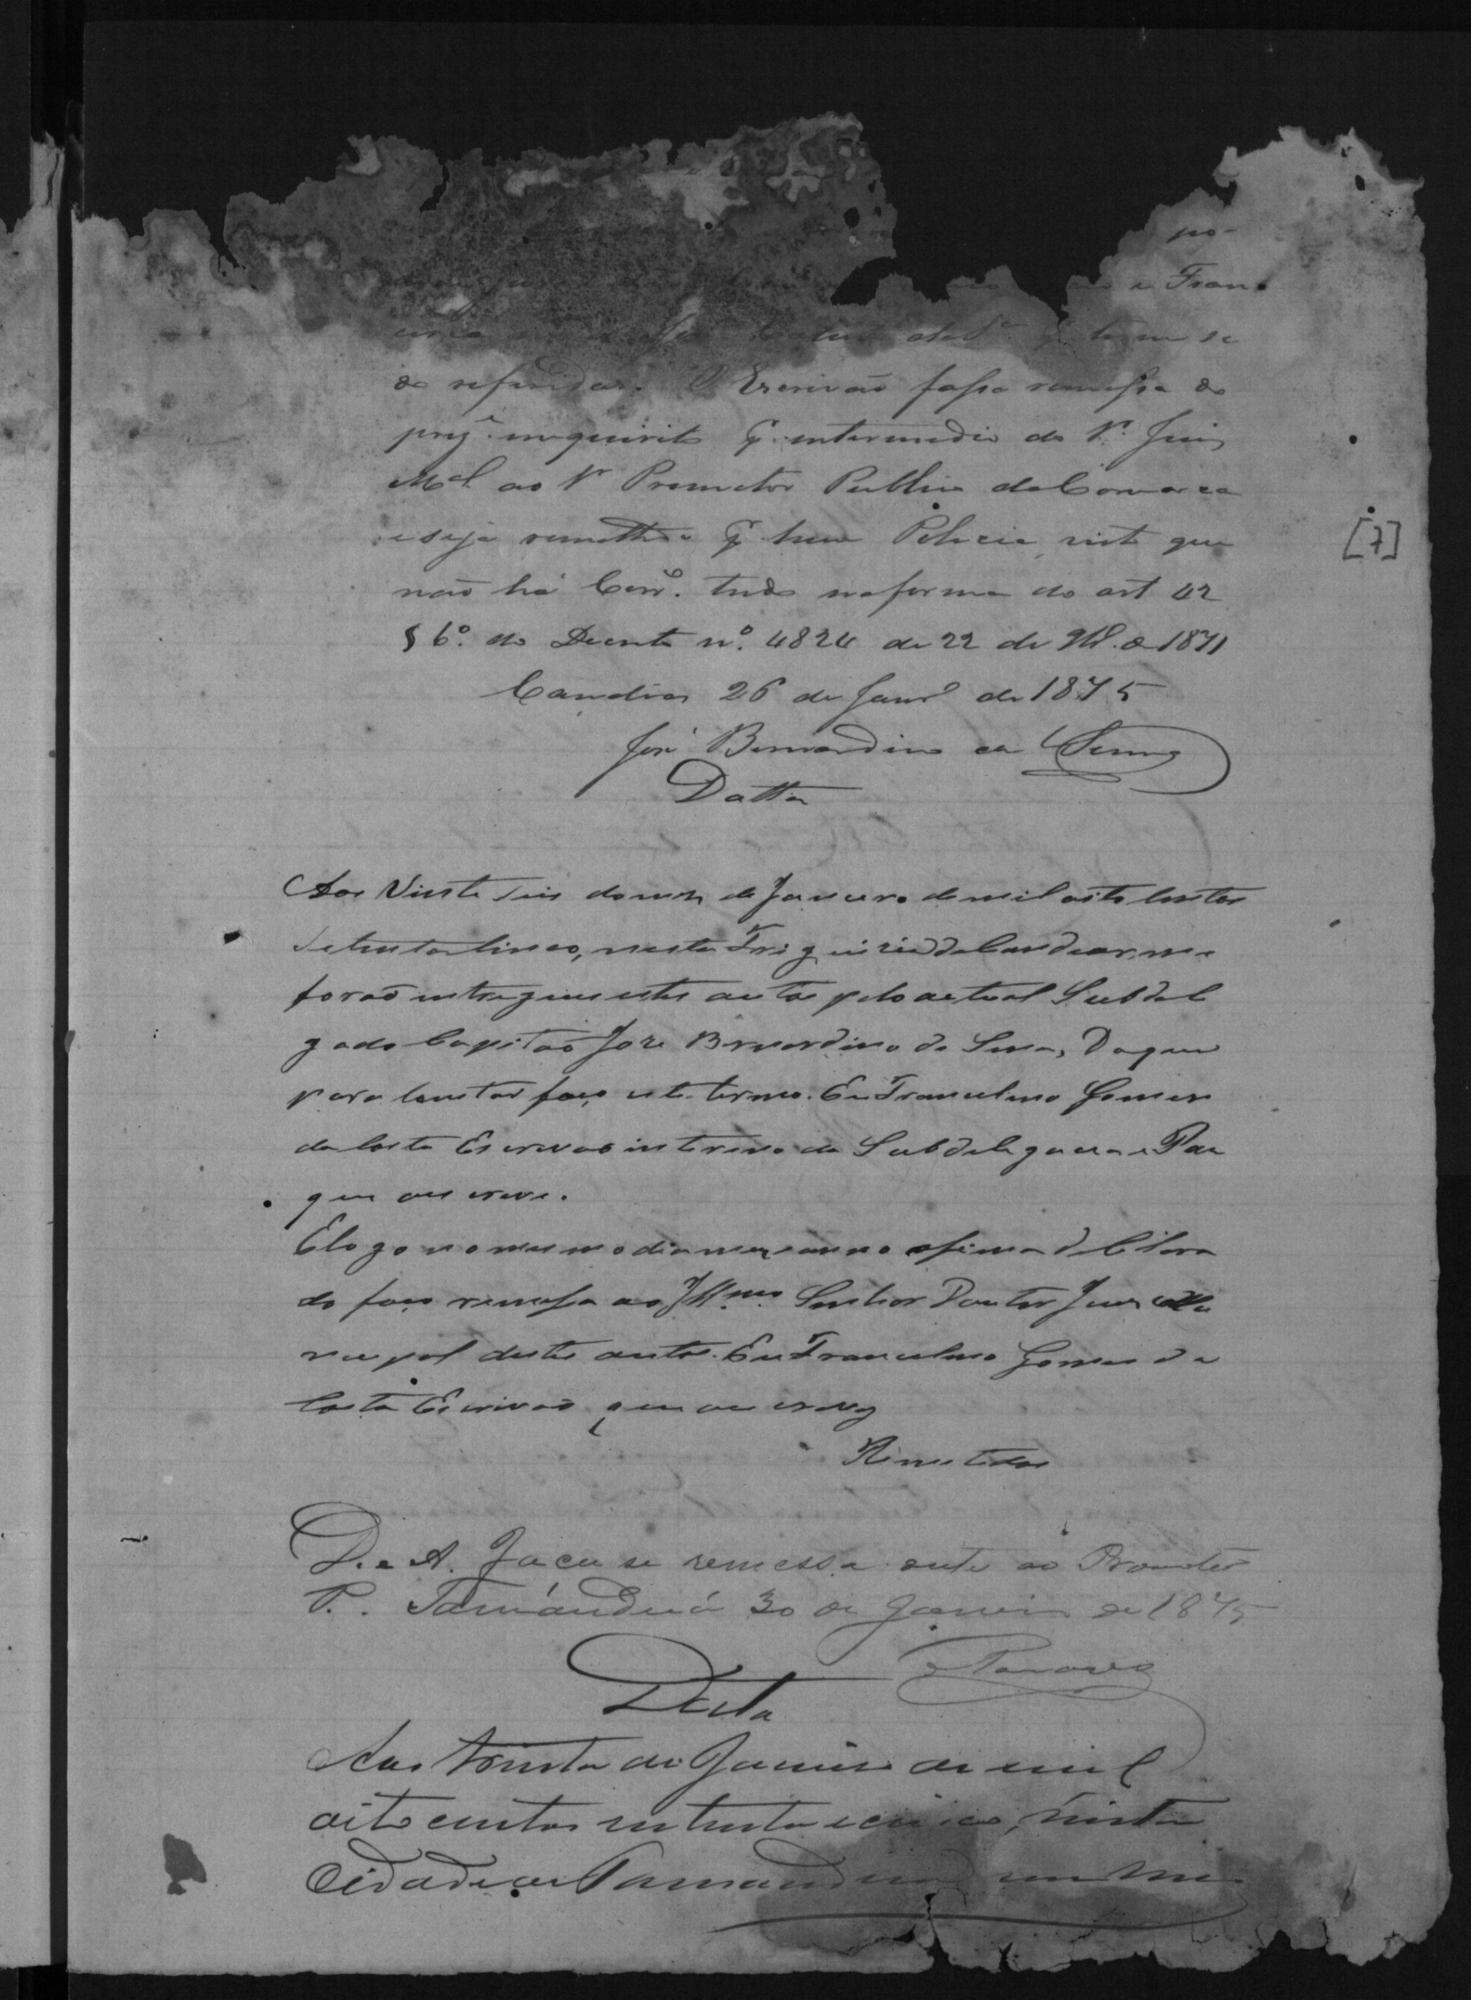 po-
e Fran-
se
do referidas. O Escrivão fassa remessa do
prez.e inquirito p. intermedio do Sr. Juis
M.al ao Sr Promotor Publico da Comarca
e seja remettido p. huma Policia visto que
não há Corr.o tudo na forma do art 42
§ 6.o do Decreto n.o 4824 de 22 de 9br.o de 1871
Candeias 26 de Janr.o de 1875
José Bernardino de Senna
Datta
Aos Vinte seis do mes de Janeiro de mil oito centos
setenta cinco, nesta Freiguizia de Candeas, me
forão intregues estes autos pelo actual Subdele
gado Capitão José Bernardino de Sena, Do que
para constar faço este termo. Eu Francelino Gomes
da Costa Escrivão interino da Subdelegacia e Paz
que ou escrevi.
E logo no mesmo dia mez e anno asima declara
do faço remessa ao Illmo. Senhor Doutor Juiz Mu
nicipal destes autos. Eu Francelino Gomes da
Costa Escrivão que ou escrevy
Remetidos
D. e A. Faça se remessa deste ao Promotor
P. Tamánduá 30 de Janeiro de 1875
Tavares
Data
Aos trinta de Janeiro de mil
oito centos setenta e cinco, nesta
Cidade de Tamanduá em meo
[7]